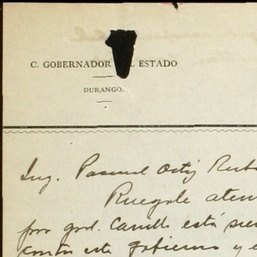 C. GOBERNADOR ESTADO
DURANGO.
Ing. Pascual Ortiz Rub
Ruegole aten
por gral. está
contra este gobierno y